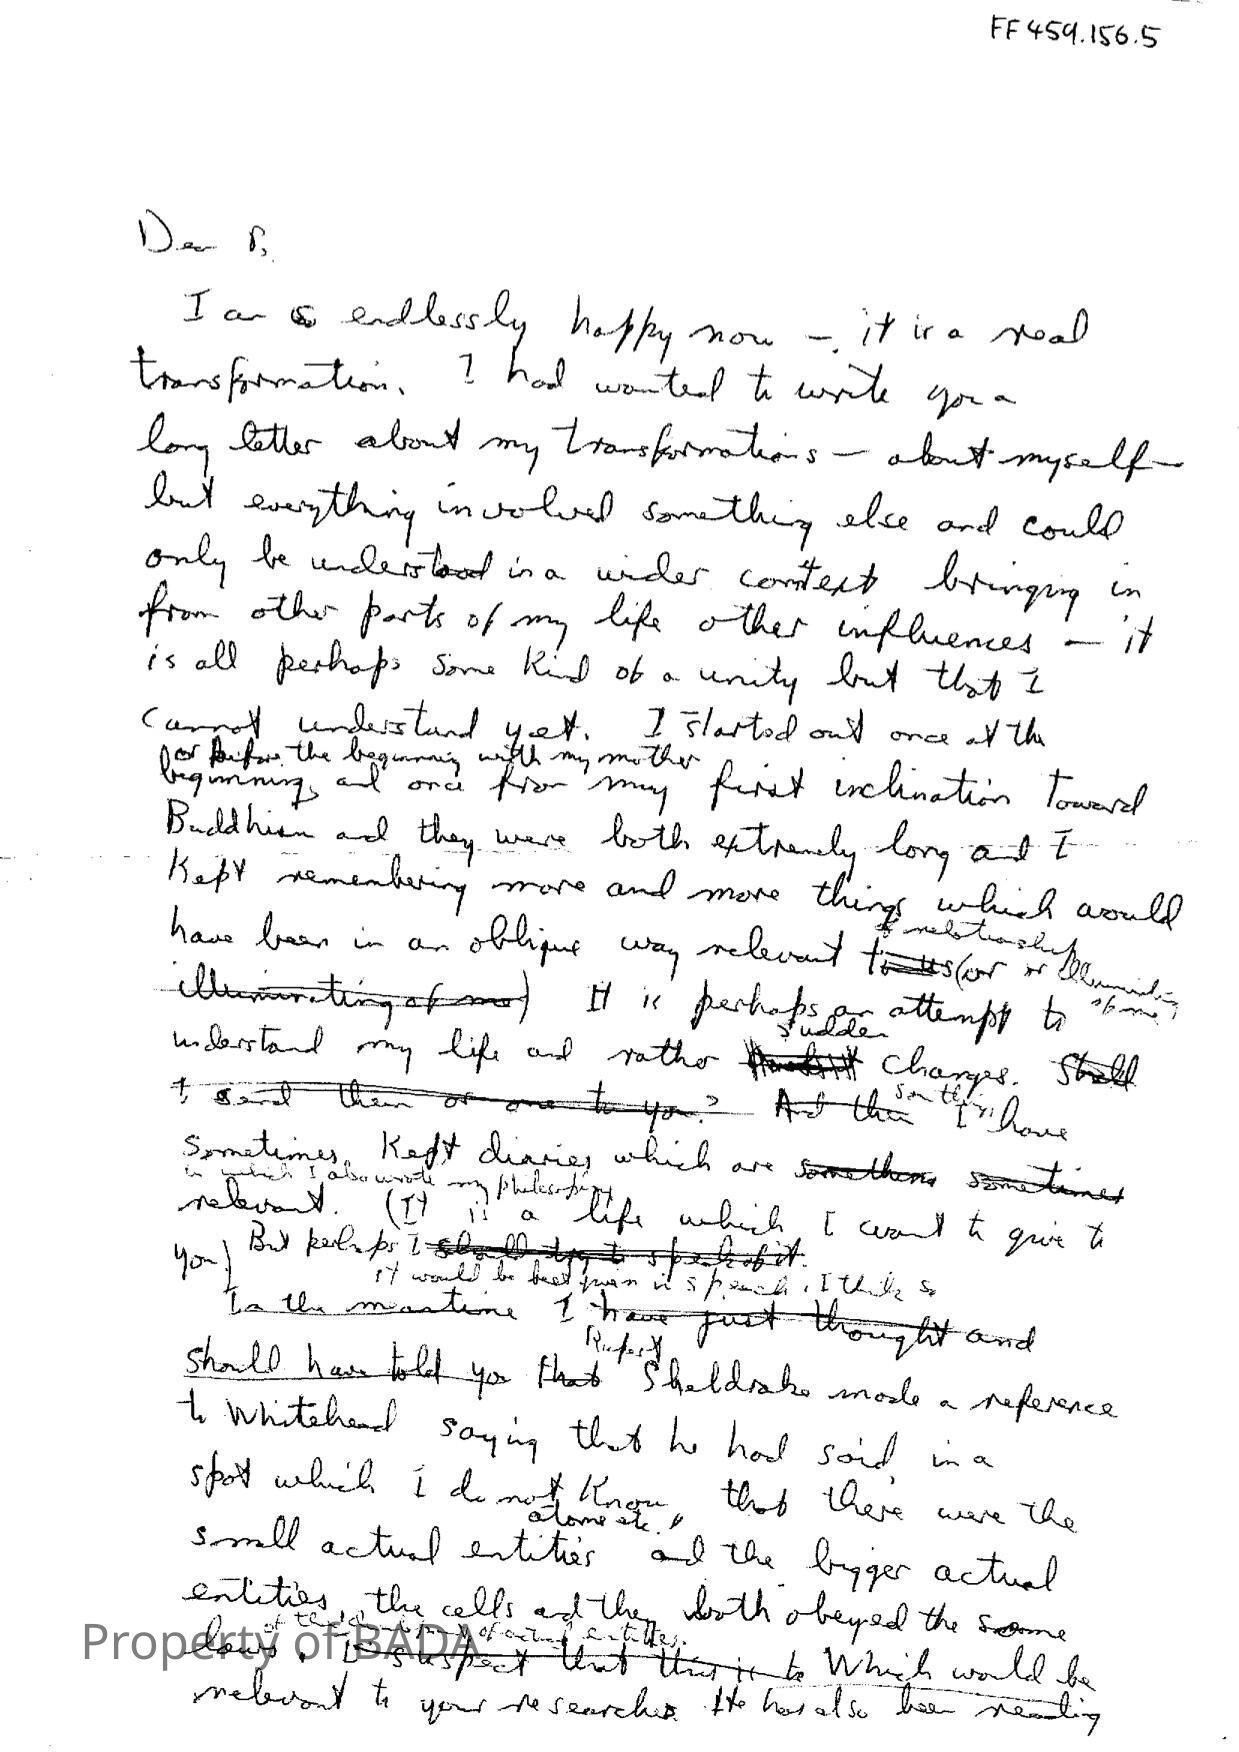 FF459.156.5
Dear P,
I am so endlessly happy now – it is a real
transformation. I had wanted to write you a
long letter about my transformations – about myself –
but everything involved something else and could
only be understood in a wider context bringing in
from other parts of my life other influences – it
is all perhaps some kind of a unity but that I
cannot understand yet. I started out once at the
or before the beginning with my mother
beginning, and once from my first inclination toward
Buddhism and they were both extremely long and I
kept remembering more and more things which would
have been in an oblique way relevant to us (or
relationship or illuminating
of me
illuminating of me) It is perhaps an attempt to
sudden
understand my life and rather changes. Shall
I send them or one to you? And then I have
sometimes kept diaries which are something sometimes
in which I also wrote my philosophy
relevant. (It is a life which I want to give to
you) But perhaps I should try to speak of it.
it would be best given in speech, I think so
In the meantime I have just thought and
Rupert
should have told you that Sheldrake made a reference
to Whitehead saying that he had said, in a
spot which I do not know, that there were the
atoms etc.,
small actual entities and the bigger actual
entities, the cells and they both obeyed the same
of actual entities.
laws. I suspect that this is to Which would be
relevant to your researches. He has also been reading
Property of BADA